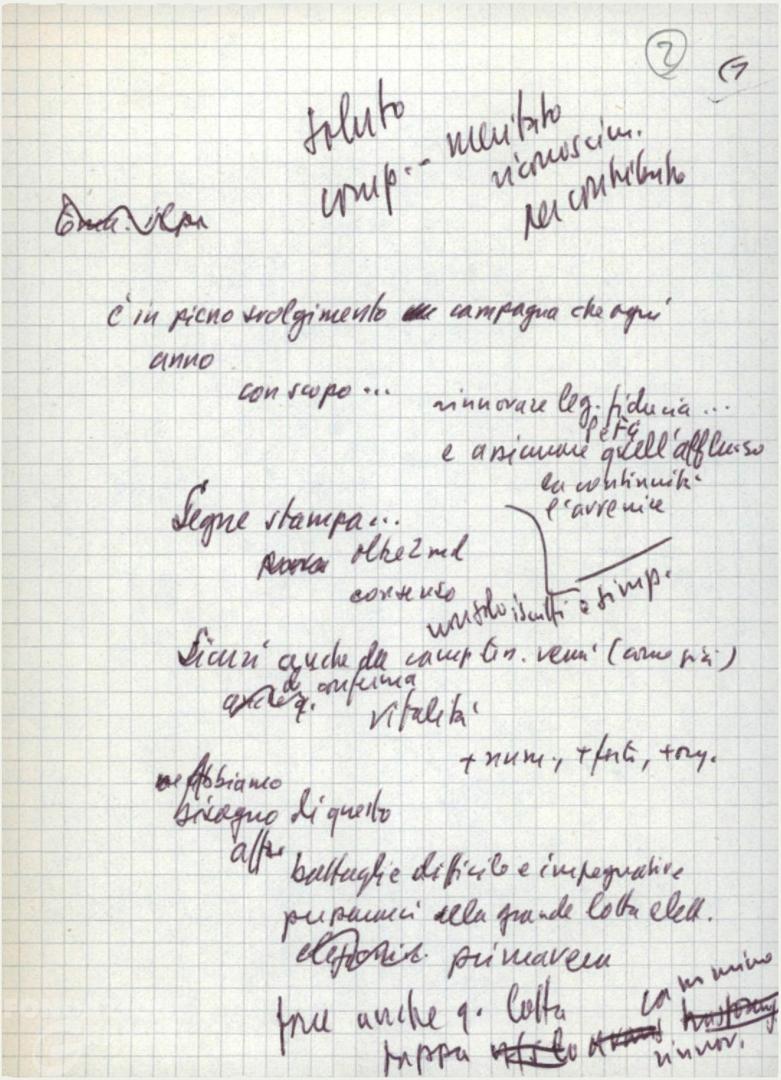 2
saluto
comp.. meritato
riconoscim.
per contributo
È in pieno svolgimento campagna che ogni
anno
con scopo...
rinnovare leg. fiducia...
e assicurare quell'afflusso
la continuità
l'avvenire
Segue stampa...
oltre 2 md
consenso
non solo iscritti e simp.
Sicuri anche da camp tess. verrà (come più)
conferma
vitalità
+ num., + forti, + org.
Abbiamo
bisogno di questo
battaglie difficili e impegnative
prepararci alla grande lotta elett.
primavera
fare anche q. lotta
tappa cammino
rinnov.